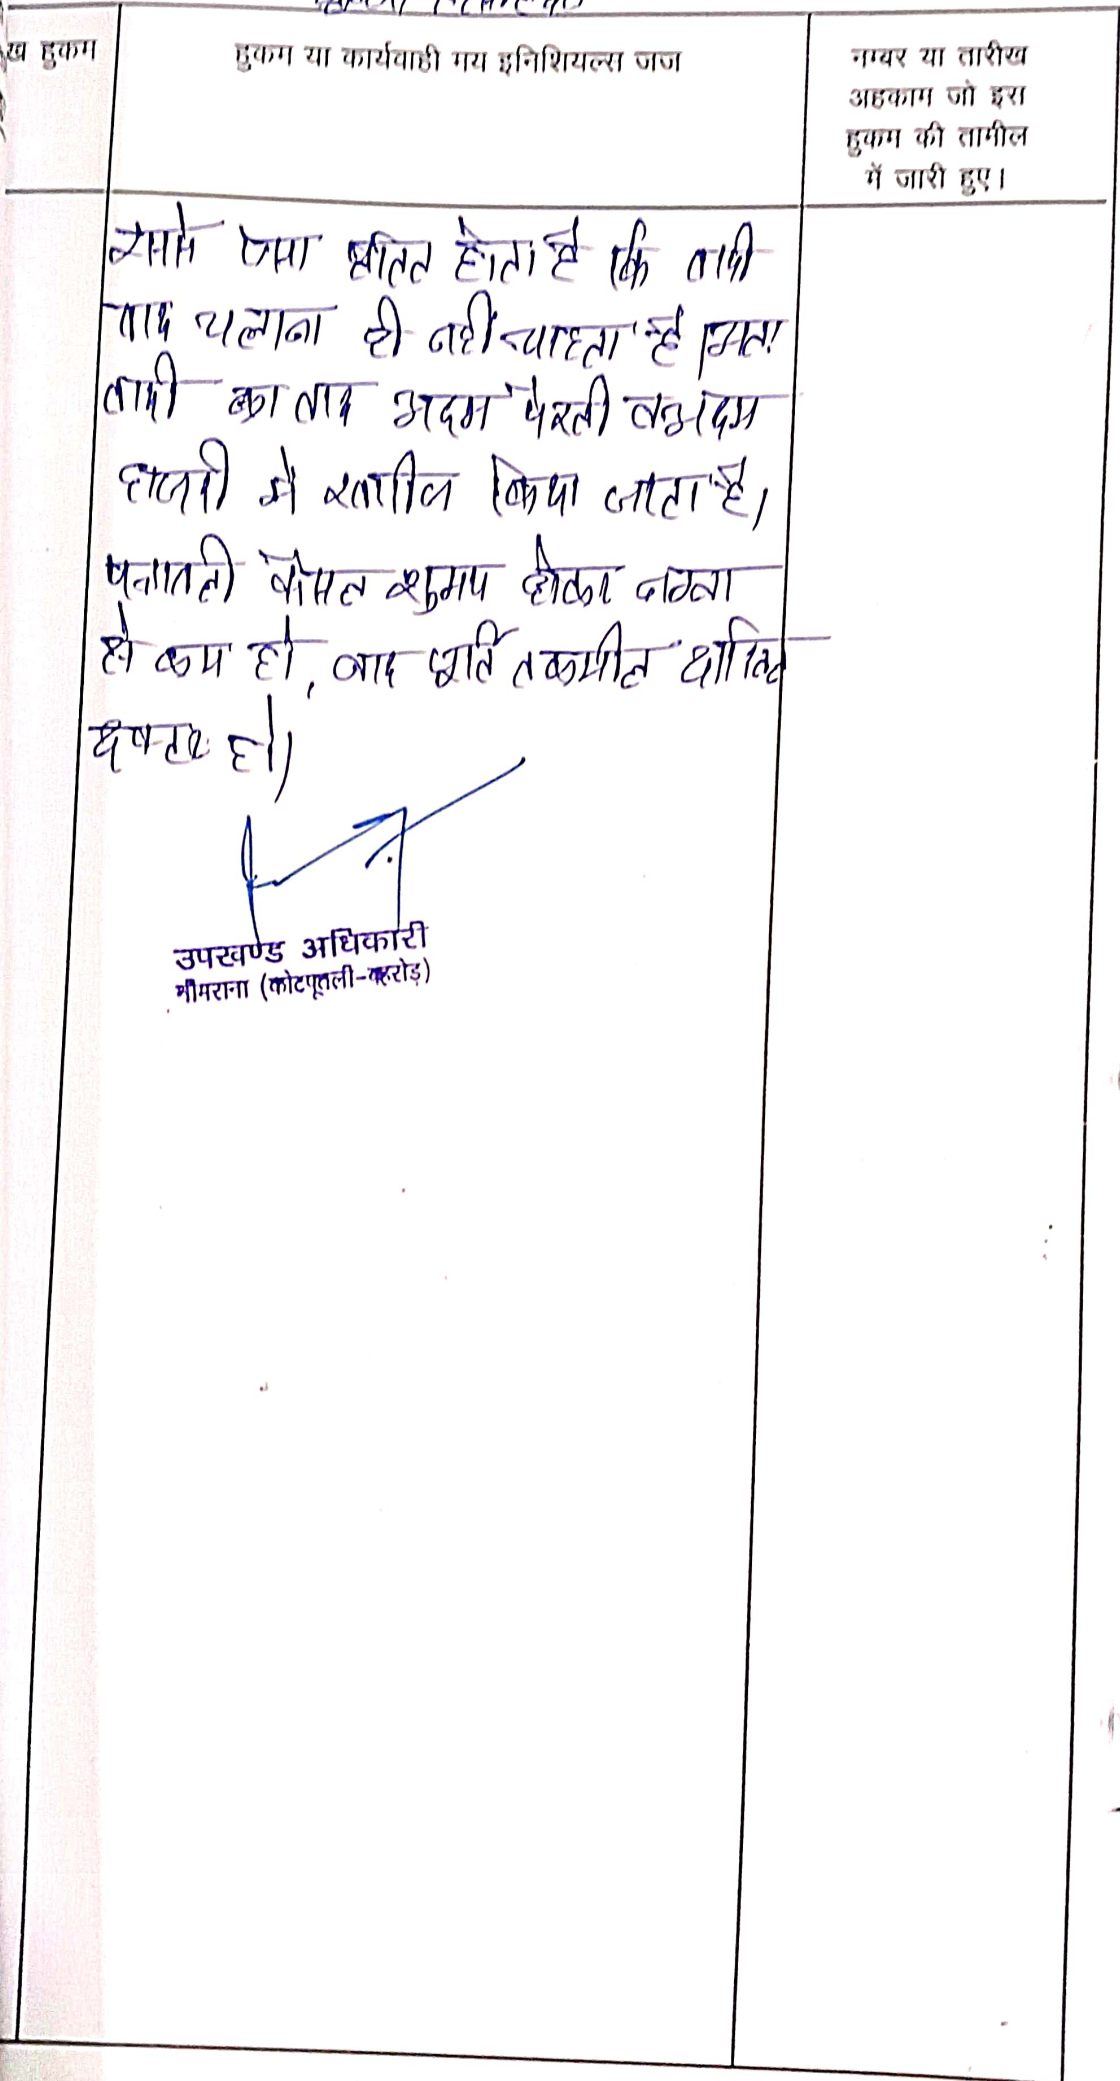 ख हुकम
हुकम या कार्यवाही मय इनिशियल्स जज
नम्बर या तारीख
अहकाम जो इस
हुकम की तामील
में जारी हुए।
इससे ऐसा प्रतित होता है कि वादी
वाद चलाना ही नहीं चाहता है। अतः
वादी का वाद अदम पैरवी व अदम
हाजरी में खारीज किया जाता है।
पत्रावली फैसल शुमार होकर नम्बर
से कम हो, बाद पूर्ति तकमील दाखिल
दफ्तर हो।
उपखण्ड अधिकारी
नीमराना (कोटपूतली-बहरोड़)